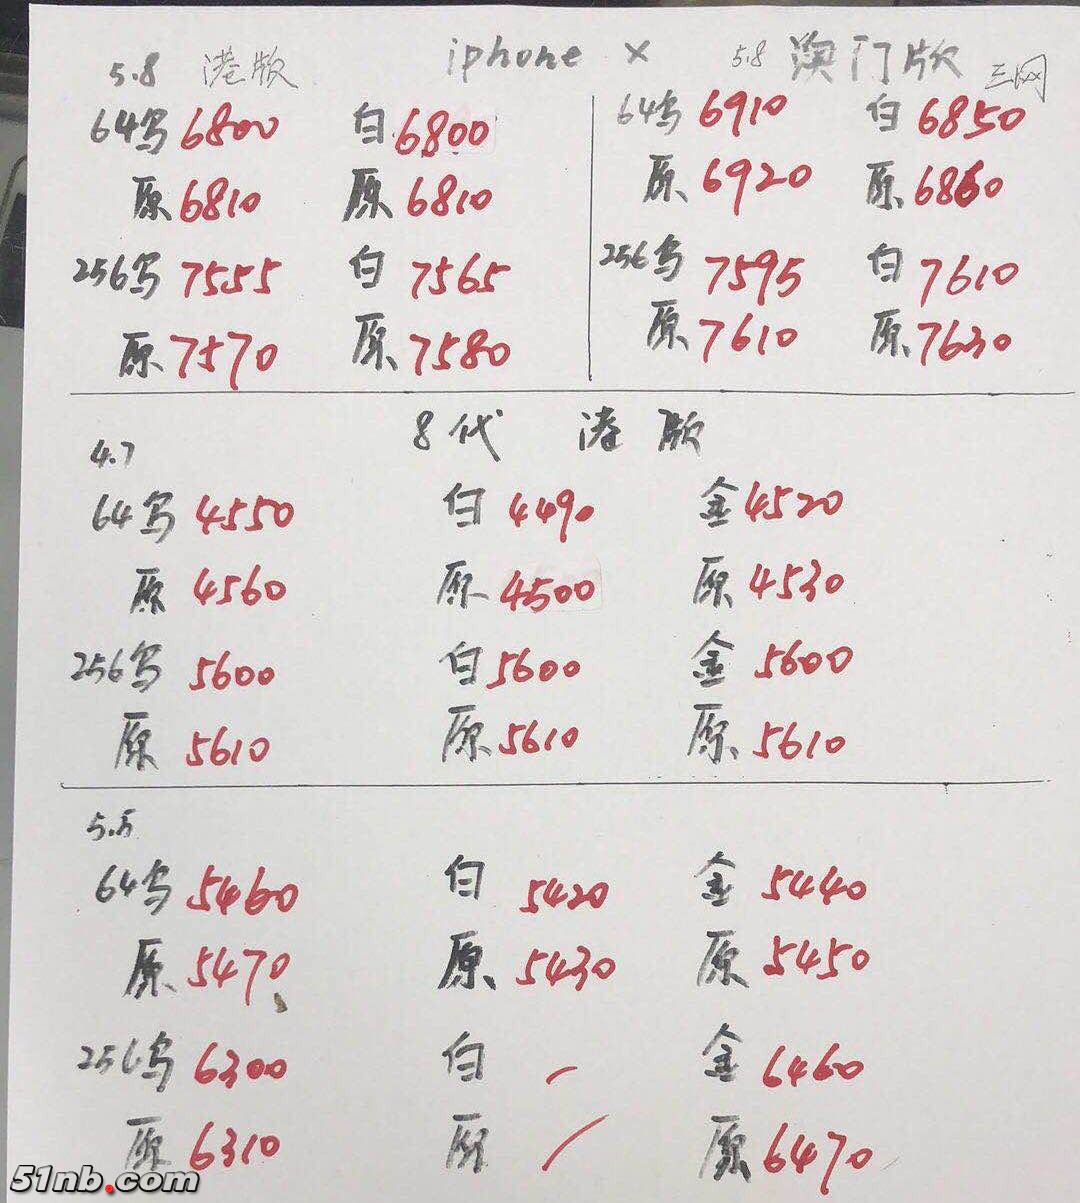 iphone x
5.8 港版
5.8 澳门版 三网
64乌 6800 白 6800 64乌 6910 白 6850
原 6810 原 6810 原 6920 原 6860
256乌 7555 白 7565 256乌 7595 白 7610
原 7570 原 7580 原 7610 原 7630
8代 港版
4.7
64乌 4550 白 4490 金 4520
原 4560 原 4500 原 4530
256乌 5600 白 5600 金 5600
原 5610 原 5610 原 5610
5.5
64乌 5460 白 5420 金 5440
原 5470 原 5430 原 5450
256乌 6300 白 / 金 6460
原 6310 原 / 原 6470
51nb.com